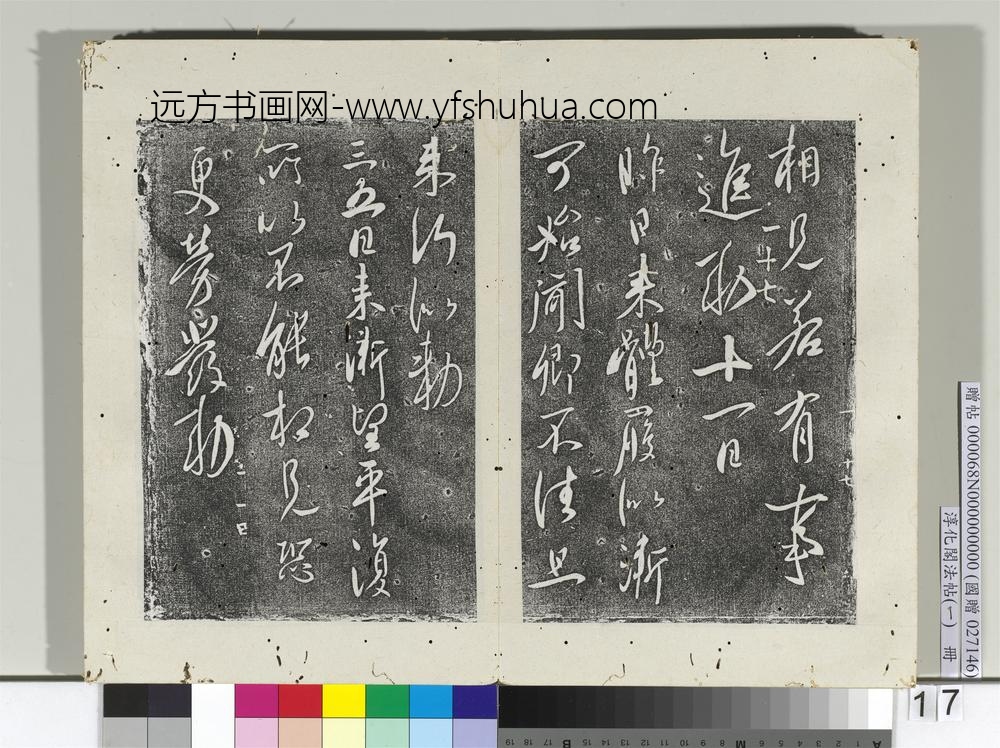 远方书画网-www.yfshuhua.com
相見若有事
進勅十一日
昨日來體履似漸
可始聞卿不佳旦
來何似勅
三五日來漸望平復
所以不能相見恐
更勞發勅
一十七
贈帖 0000068N000000000 (國贈 027146)
淳化閣法帖(一) 冊
17